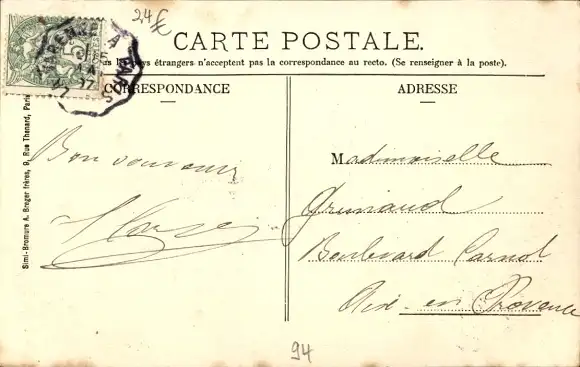 24 €
CARTE POSTALE.
pays étrangers n'acceptent pas la correspondance au recto. (Se renseigner à la poste).
CORRESPONDANCE
ADRESSE
Simi-Bromure A. Breger frères, 9, Rue Thenard, Paris
Bon souvenir
Mademoiselle
Grimaud
Boulevard Carnot
Aix-en Provence
94